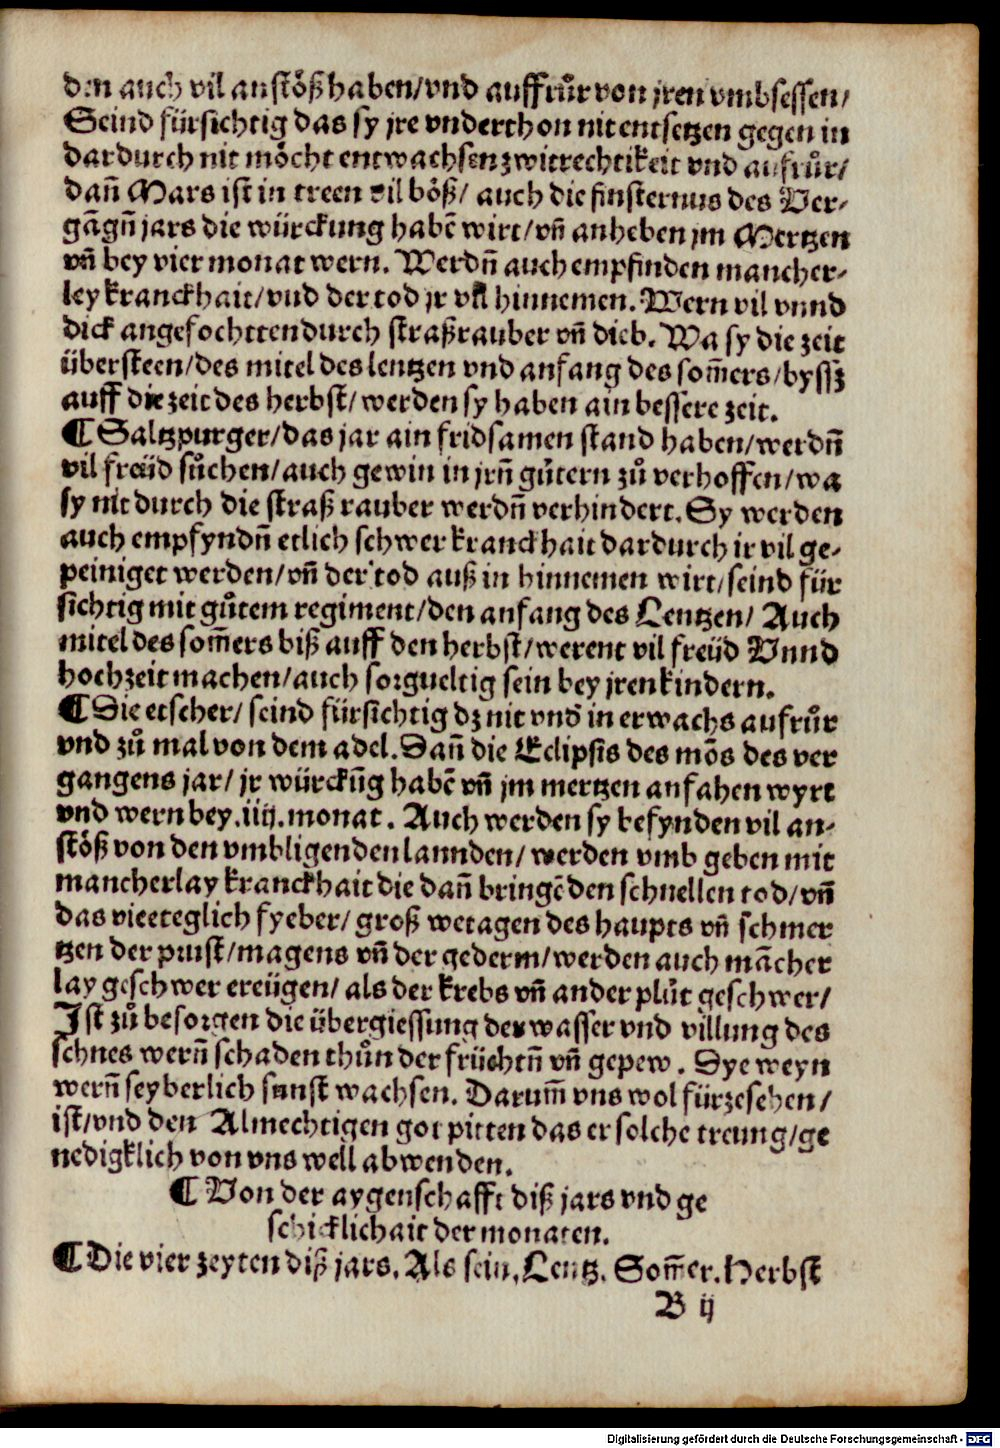 den auch vil anstöß haben/vnd auffrůr von jren vmbsessen/
Seind fürsichtig das sy jre vnderthon nit entsetzen gegen in
dardurch nit möcht entwachsen zwitrechtikeit vnd aufrůr/
dañ Mars ist in treen vil böß/ auch die finsternus des Ver-
gāgñ jars die würckung habē wirt/vñ anheben jm Mertzen
vñ bey vier monat wern. Werdñ auch empfinden mancher-
ley kranckhait/vnd der tod jr vil hinnemen. Wern vil vnnd
dick angefochtten durch straßrauber vñ dieb. Wa sy die zeit
übersteen/des mitel des lentzen vnd anfang des som̄ers/byssz
auff die zeit des herbst/werden sy haben ain bessere zeit.
¶ Saltzpurger/das jar ain fridsamen stand haben/werdñ
vil freüd sůchen/auch gewin in jrñ gůtern zů verhoffen/wa
sy nit durch die straß rauber werdñ verhindert. Sy werden
auch empfyndñ etlich schwer kranckhait dardurch ir vil ge-
peiniget werden/vñ der tod auß in hinnemen wirt/seind für
sichtig mit gůtem regiment/den anfang des Lentzen/ Auch
mitel des som̄ers biß auff den herbst/werent vil freüd Vnnd
hochzeit machen/auch sorgueltig sein bey jren kindern.
¶ Die etscher/ seind fürsichtig dz nit vnd̄ in erwachs aufrůr
vnd zů mal von dem adel. Dañ die Eclipsis des mōs des ver
gangens jar/ jr würckūg habē vñ jm mertzen anfahen wyrt
vnd wern bey .iiij. monat. Auch werden sy befynden vil an-
stöß von den vmbligenden lannden/ werden vmb geben mit
mancherlay kranckhait die dañ bringē den schnellen tod/vñ
das vieeteglich fyeber/ groß wetagen des haupts vñ schmer
tzen der prust/magens vñ der gederm/werden auch mācher
lay geschwer ereügen/ als der krebs vñ ander plůt geschwer/
Ist zů besorgen die übergiessung der wasser vnd villung des
schnes wern̄ schaden thůn der früchtñ vñ gepew. Dye weyn
wern̄ seyberlich sunst wachsen. Darum̄ vns wol fürzesehen/
ist/vnd den Almechtigen got pitten das er solche treung/ge
nedigklich von vns well abwenden.
¶ Von der aygenschafft diß jars vnd ge
schicklichait der monaten.
¶ Die vier zeyten diß jars. Als sein. Lentz. Som̄er. Herbst
B ij
Digitalisierung gefördert durch die Deutsche Forschungsgemeinschaft - DFG